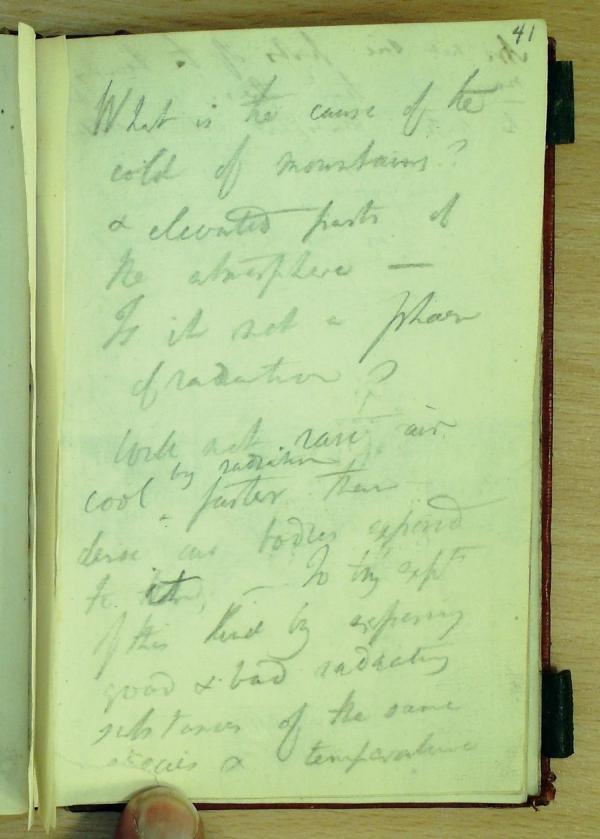 41
What is the cause of the
cold of mountains?
& elevated parts of
the atmosphere —
Is it not a phaen
of radiation?
Will not rare air
cool by radiation faster than
dense air bodies exposed
to it, — To try expts
of this kind by exposing
good & bad radiating
substances of the same
& temperature